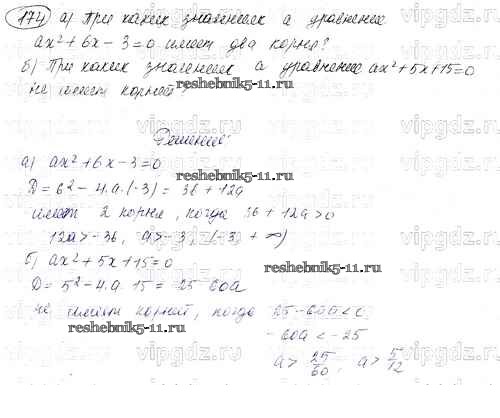 174 а) При каких значениях а уравнение
ax²+6x-3=0 имеет два корня?
б) При каких значениях а уравнение ax²+5x+15=0
не имеет корней?
reshebnik5-11.ru
Решение:
а) ax²+6x-3=0
D=6²-4·a·(-3)=36+12a
имеет 2 корня, когда 36+12a>0
12a>-36, a>-3, (-3,+∞)
б) ax²+5x+15=0
reshebnik5-11.ru
D=5²-4·a·15=25-60a
не имеет корней, когда 25-60a<0
reshebnik5-11.ru
-60a<-25
a>25/60, a>5/12
vipgdz.ru vipgdz.ru vipgdz.ru